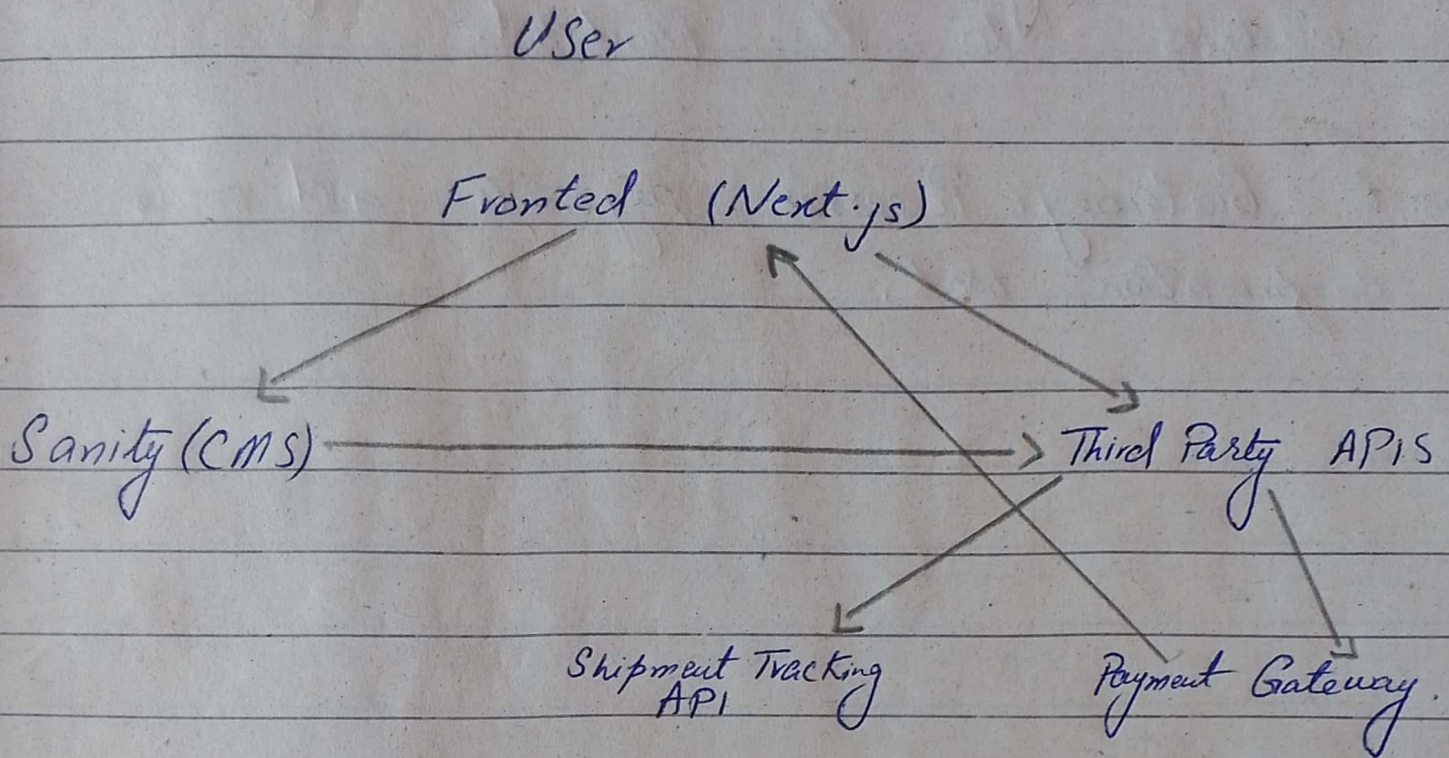 User
Fronted (Next.js)
Sanity (CMS)
Third Party APIS
Shipment Tracking
API
Payment Gateway.